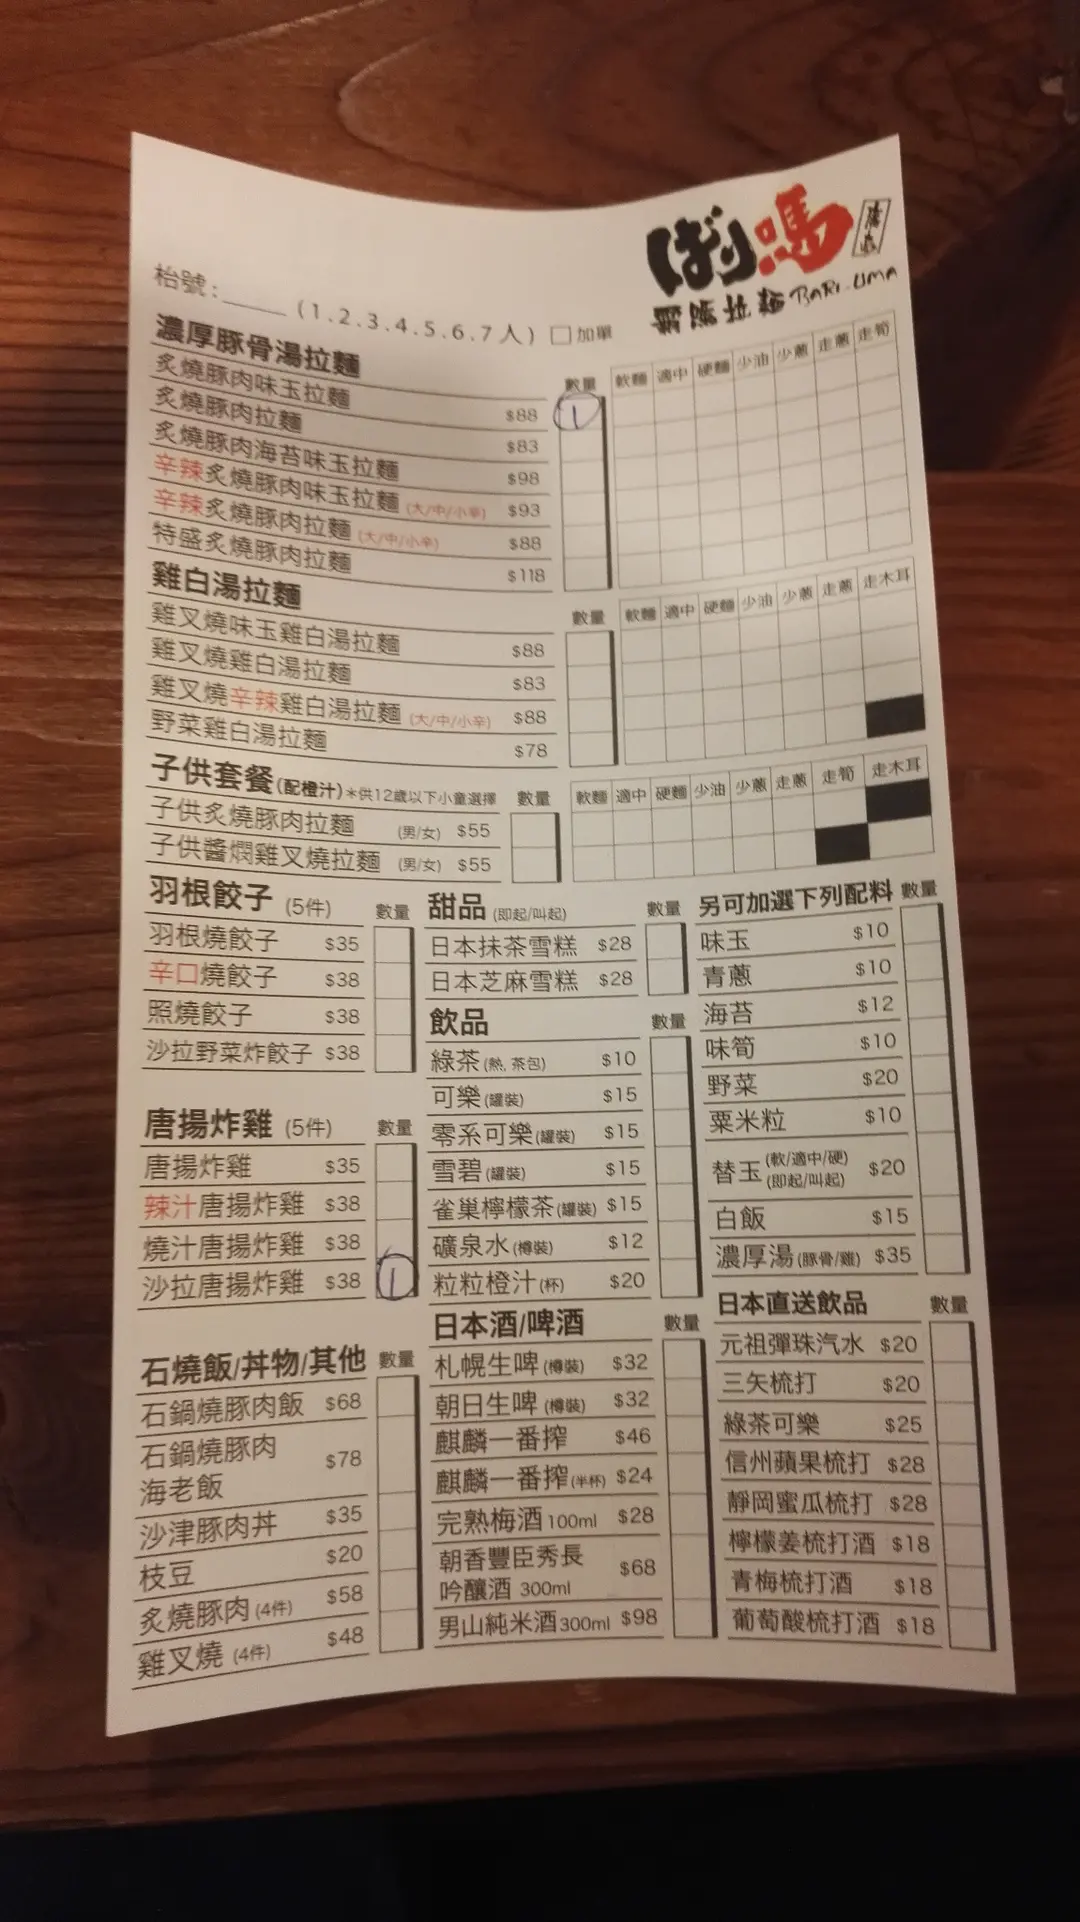 ばり嗎
霸嗎拉麵 BARI-UMA
枱號:_____ (1.2.3.4.5.6.7人) □加單
濃厚豚骨湯拉麵 數量 軟麵 適中 硬麵 少油 少蔥 走蔥 走筍
炙燒豚肉味玉拉麵 $88 1
炙燒豚肉拉麵 $83
炙燒豚肉海苔味玉拉麵 $98
辛辣炙燒豚肉味玉拉麵 (大/中/小辛) $93
辛辣炙燒豚肉拉麵 (大/中/小辛) $88
特盛炙燒豚肉拉麵 $118
雞白湯拉麵 數量 軟麵 適中 硬麵 少油 少蔥 走蔥 走木耳
雞叉燒味玉雞白湯拉麵 $88
雞叉燒雞白湯拉麵 $83
雞叉燒辛辣雞白湯拉麵 (大/中/小辛) $88
野菜雞白湯拉麵 $78
子供套餐(配橙汁)*供12歲以下小童選擇 數量 軟麵 適中 硬麵 少油 少蔥 走蔥 走筍 走木耳
子供炙燒豚肉拉麵 (男/女) $55
子供醬燜雞叉燒拉麵 (男/女) $55
羽根餃子 (5件) 數量
羽根燒餃子 $35
辛口燒餃子 $38
照燒餃子 $38
沙拉野菜炸餃子 $38
唐揚炸雞 (5件) 數量
唐揚炸雞 $35
辣汁唐揚炸雞 $38
燒汁唐揚炸雞 $38
沙拉唐揚炸雞 $38 1
石燒飯/丼物/其他 數量
石鍋燒豚肉飯 $68
石鍋燒豚肉
海老飯 $78
沙津豚肉丼 $35
枝豆 $20
炙燒豚肉 (4件) $58
雞叉燒 (4件) $48
甜品 (即起/叫起) 數量
日本抹茶雪糕 $28
日本芝麻雪糕 $28
飲品 數量
綠茶 (熱, 茶包) $10
可樂 (罐裝) $15
零系可樂 (罐裝) $15
雪碧 (罐裝) $15
雀巢檸檬茶 (罐裝) $15
礦泉水 (樽裝) $12
粒粒橙汁 (杯) $20
日本酒/啤酒 數量
札幌生啤 (樽裝) $32
朝日生啤 (樽裝) $32
麒麟一番搾 $46
麒麟一番搾 (半杯) $24
完熟梅酒 100ml $28
朝香豐臣秀長
吟釀酒 300ml $68
男山純米酒 300ml $98
另可加選下列配料 數量
味玉 $10
青蔥 $10
海苔 $12
味筍 $10
野菜 $20
粟米粒 $10
替玉 (軟/適中/硬) (即起/叫起) $20
白飯 $15
濃厚湯 (豚骨/雞) $35
日本直送飲品 數量
元祖彈珠汽水 $20
三矢梳打 $20
綠茶可樂 $25
信州蘋果梳打 $28
靜岡蜜瓜梳打 $28
檸檬姜梳打酒 $18
青梅梳打酒 $18
葡萄酸梳打酒 $18